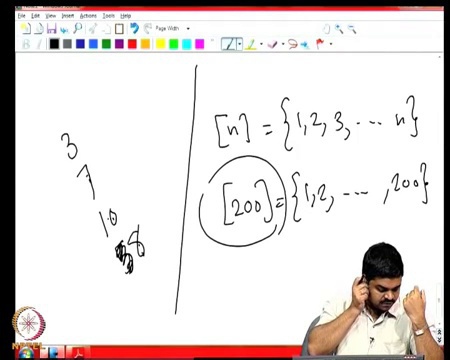 File Edit View Insert Actions Tools Help
Page Width
3
7
10
8
[n] = {1, 2, 3, ... n}
[200] = {1, 2, ... , 200}